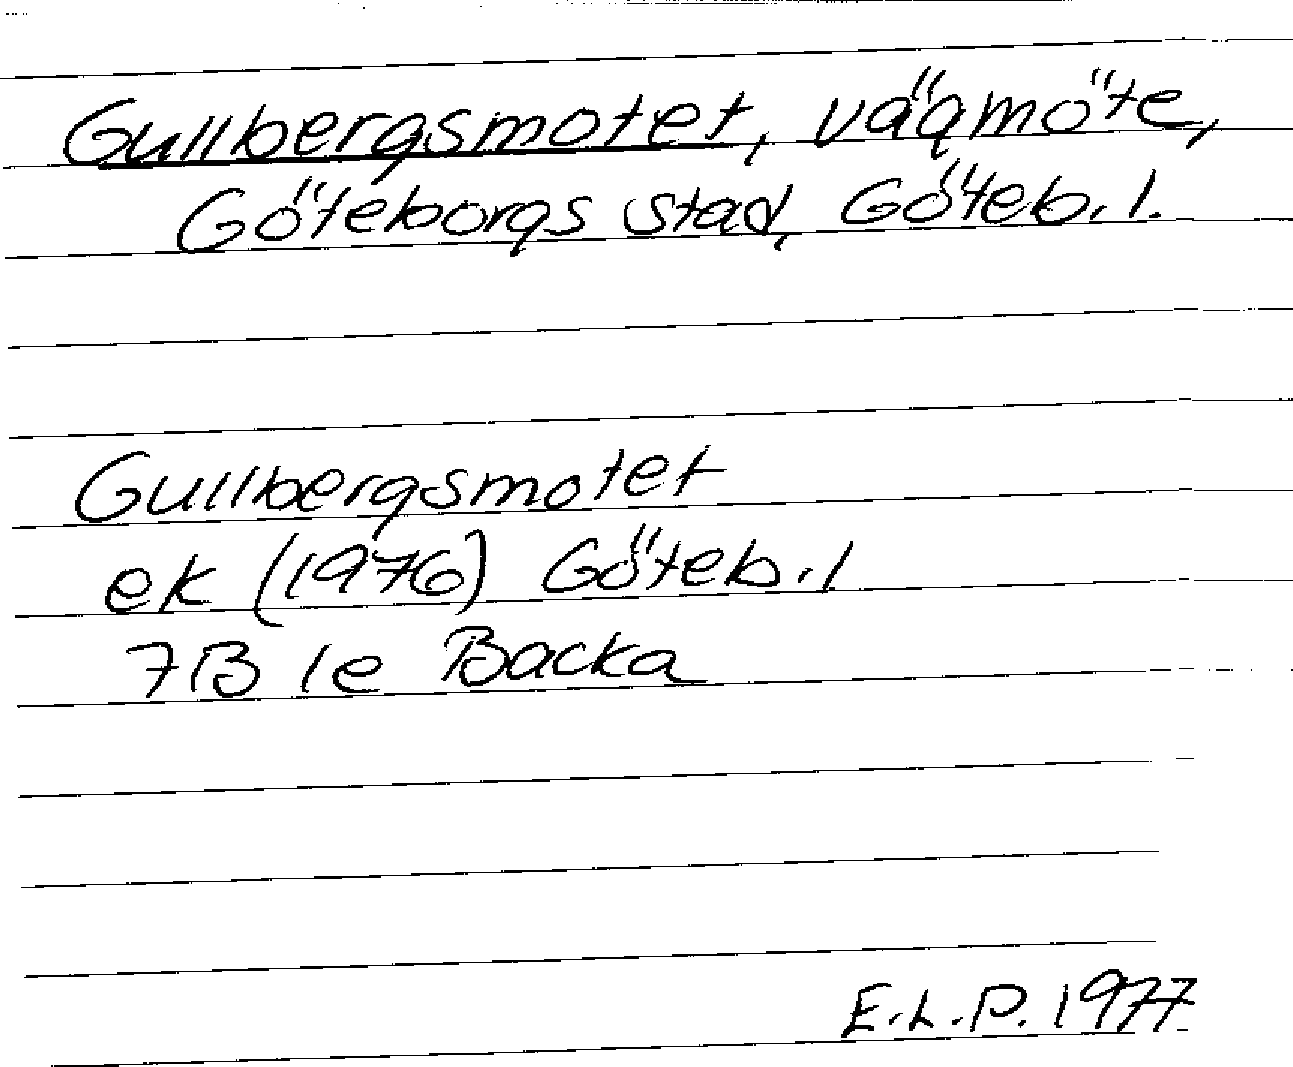 Gullbergsmotet, vägmöte,
Göteborgs stad, Göteb. l.
Gullbergsmotet
ek (1976) Göteb. l
7B 1e Backa
E.L.P. 1977